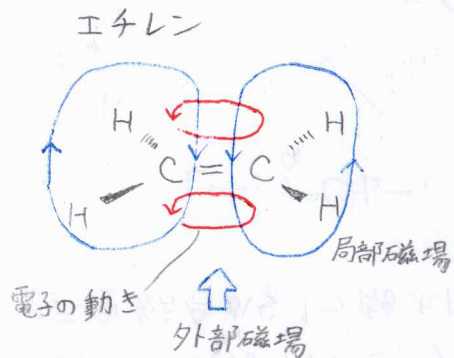 エチレン
H H
C = C
H H
局部磁場
電子の動き
外部磁場